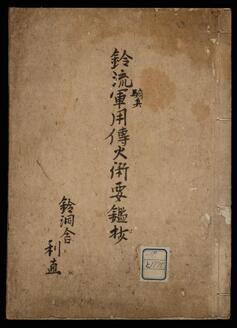 鈴流軍用傳火術要鑑抜
騎兵
鈴洞舎
利直